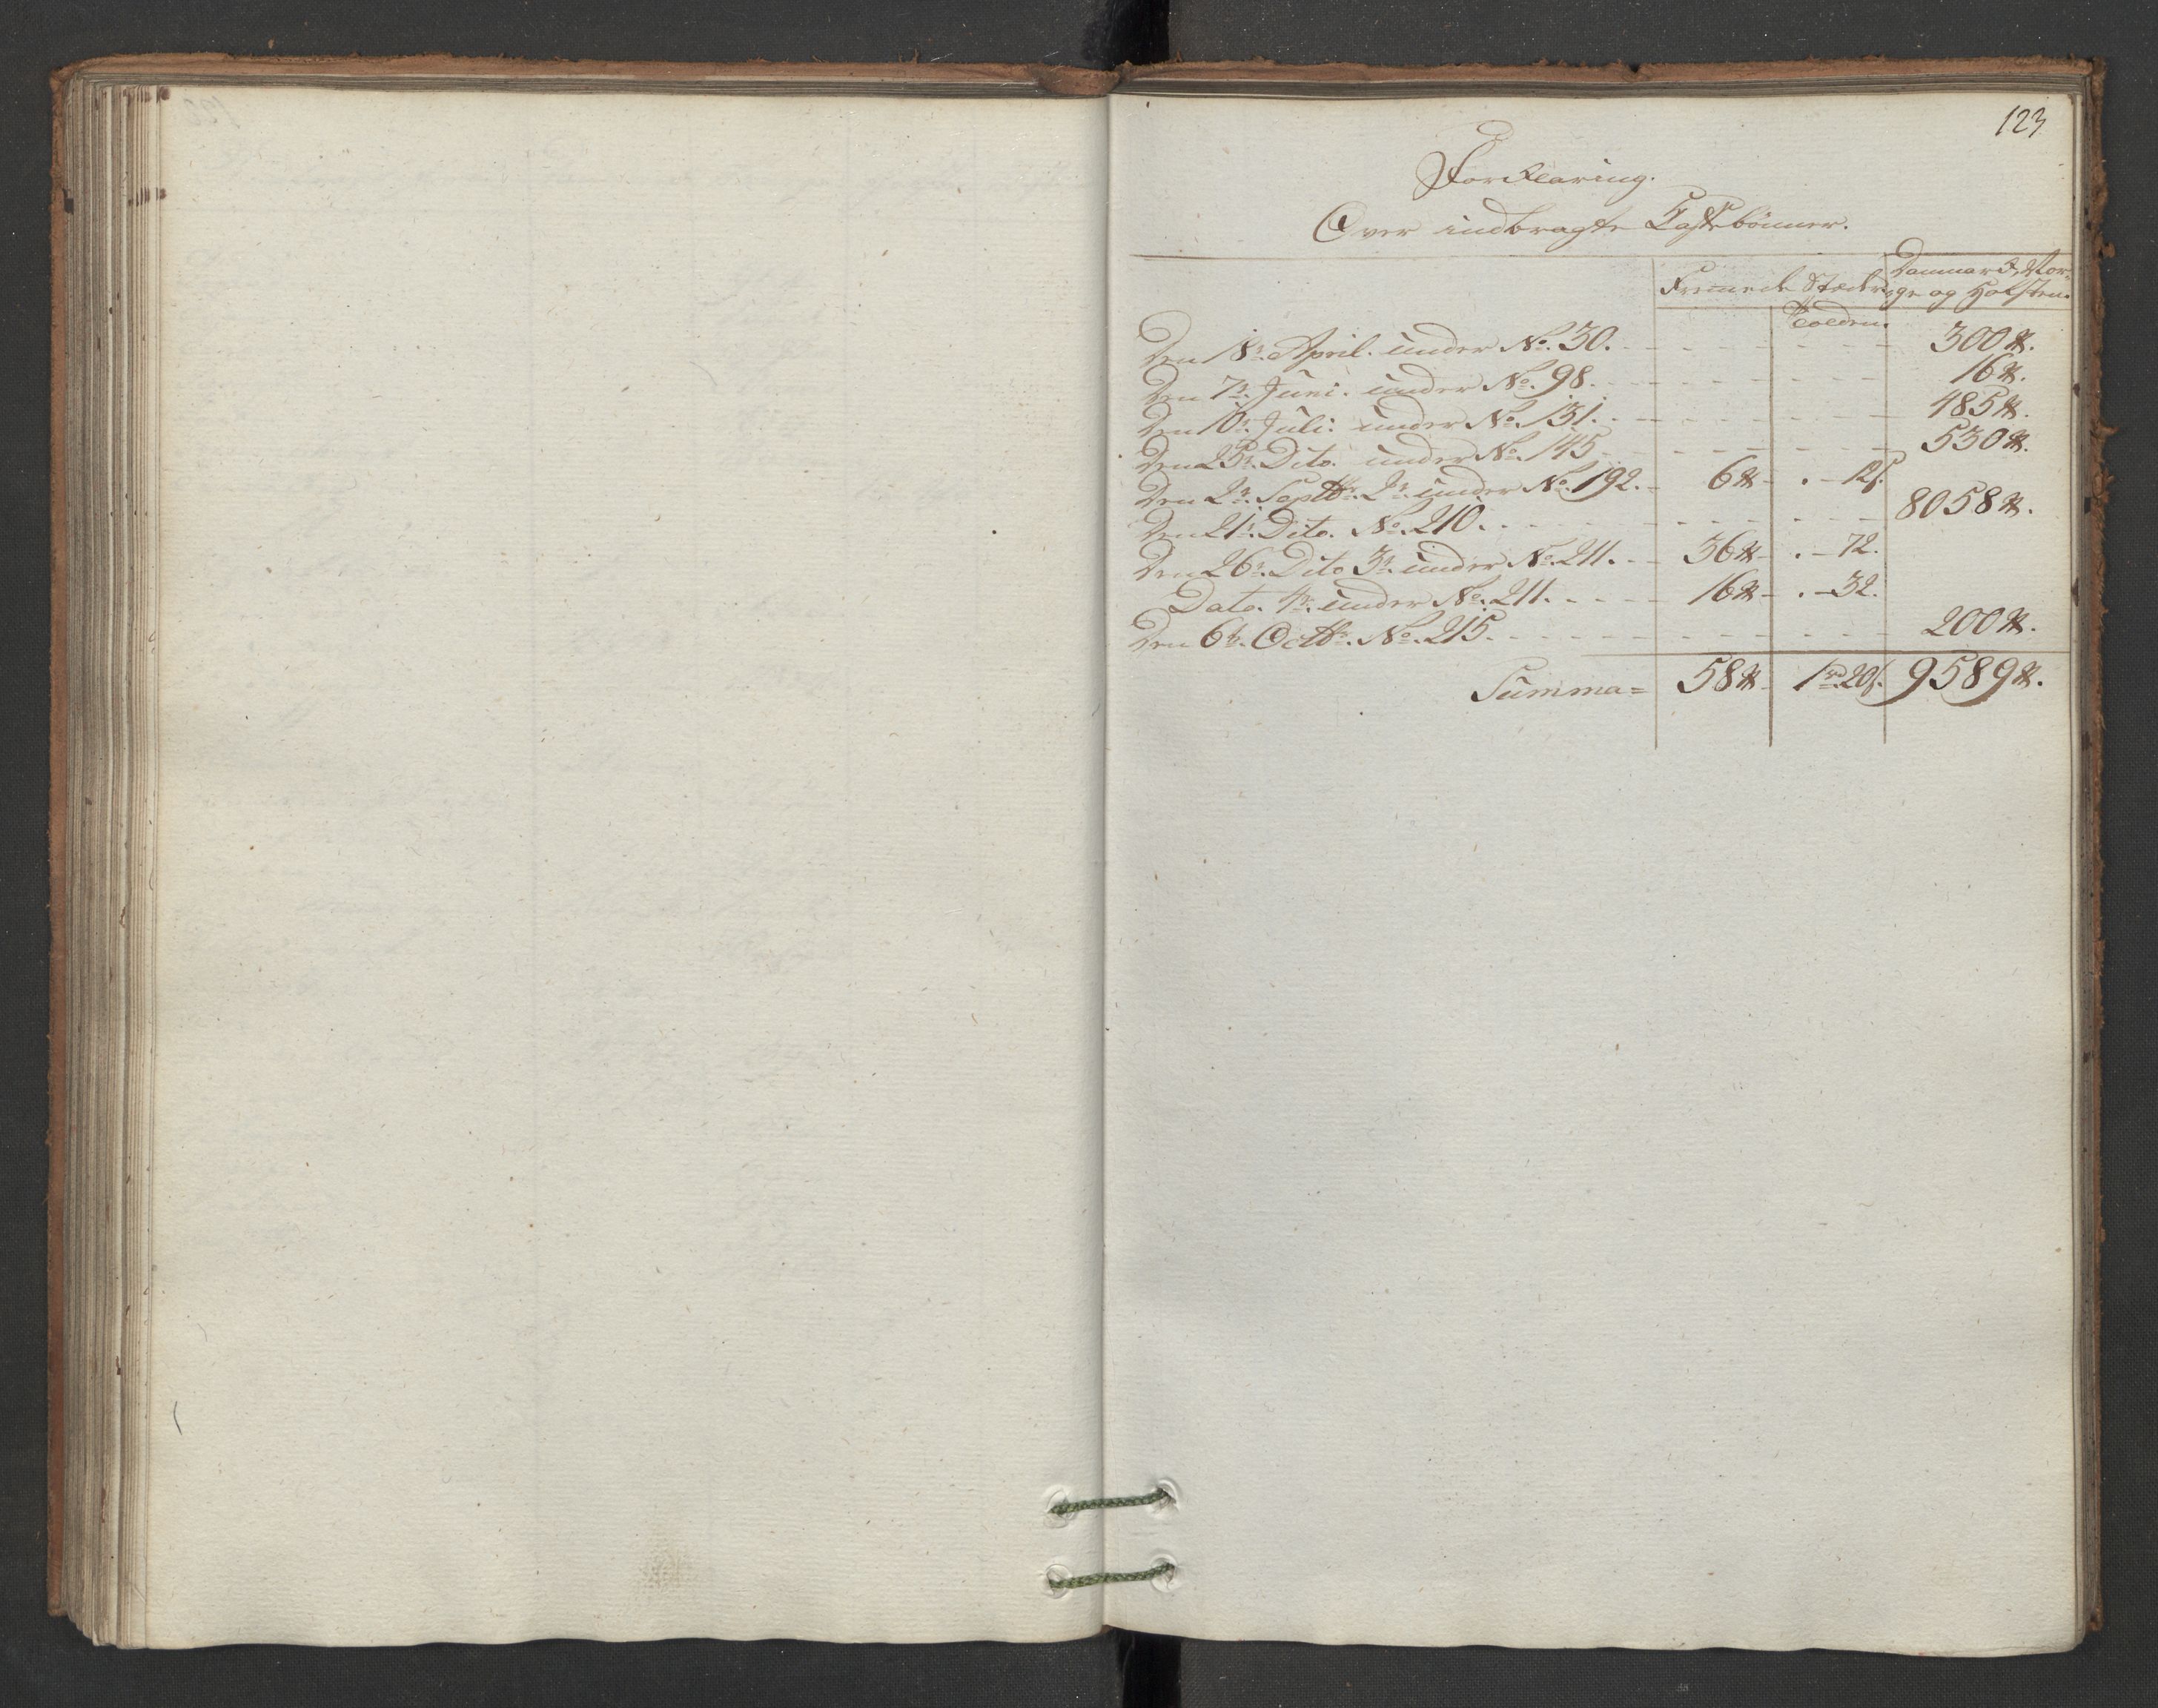 123
Forklaring.
Over indbragte Caffebønner.
Fremede Stæder
Danmarck, Nor-
ge og Holsten.
Tolden.
Den 18de April. under No. 30. 300 ℔.
Den 7de Juni. under No. 98. 16 ℔.
Den 10de Juli. under No. 131. 485 ℔.
Den 25de Dito. under No. 145 530 ℔.
Den 2de Septbr. 2de under No. 192. 6 ℔ . - 12 s.
Den 21de Dito. No. 210. 8058 ℔.
Den 26de Dito 3de under No. 211. 36 ℔ . - 72.
Dato. 4de under No. 211. 16 ℔ . - 32.
Den 6te Octbr. No. 215. 200 ℔.
Summa = 58 ℔ 1 rd. 20 s. 9589 ℔.